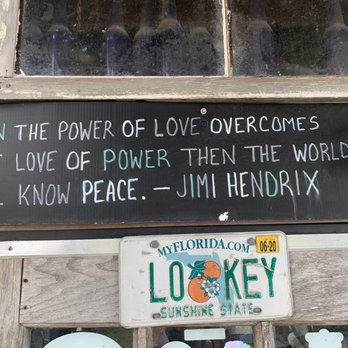 N THE POWER OF LOVE OVERCOMES
LOVE OF POWER THEN THE WORLD
KNOW PEACE. — JIMI HENDRIX
MYFLORIDA.COM 06-20
LO KEY
SUNSHINE STATE